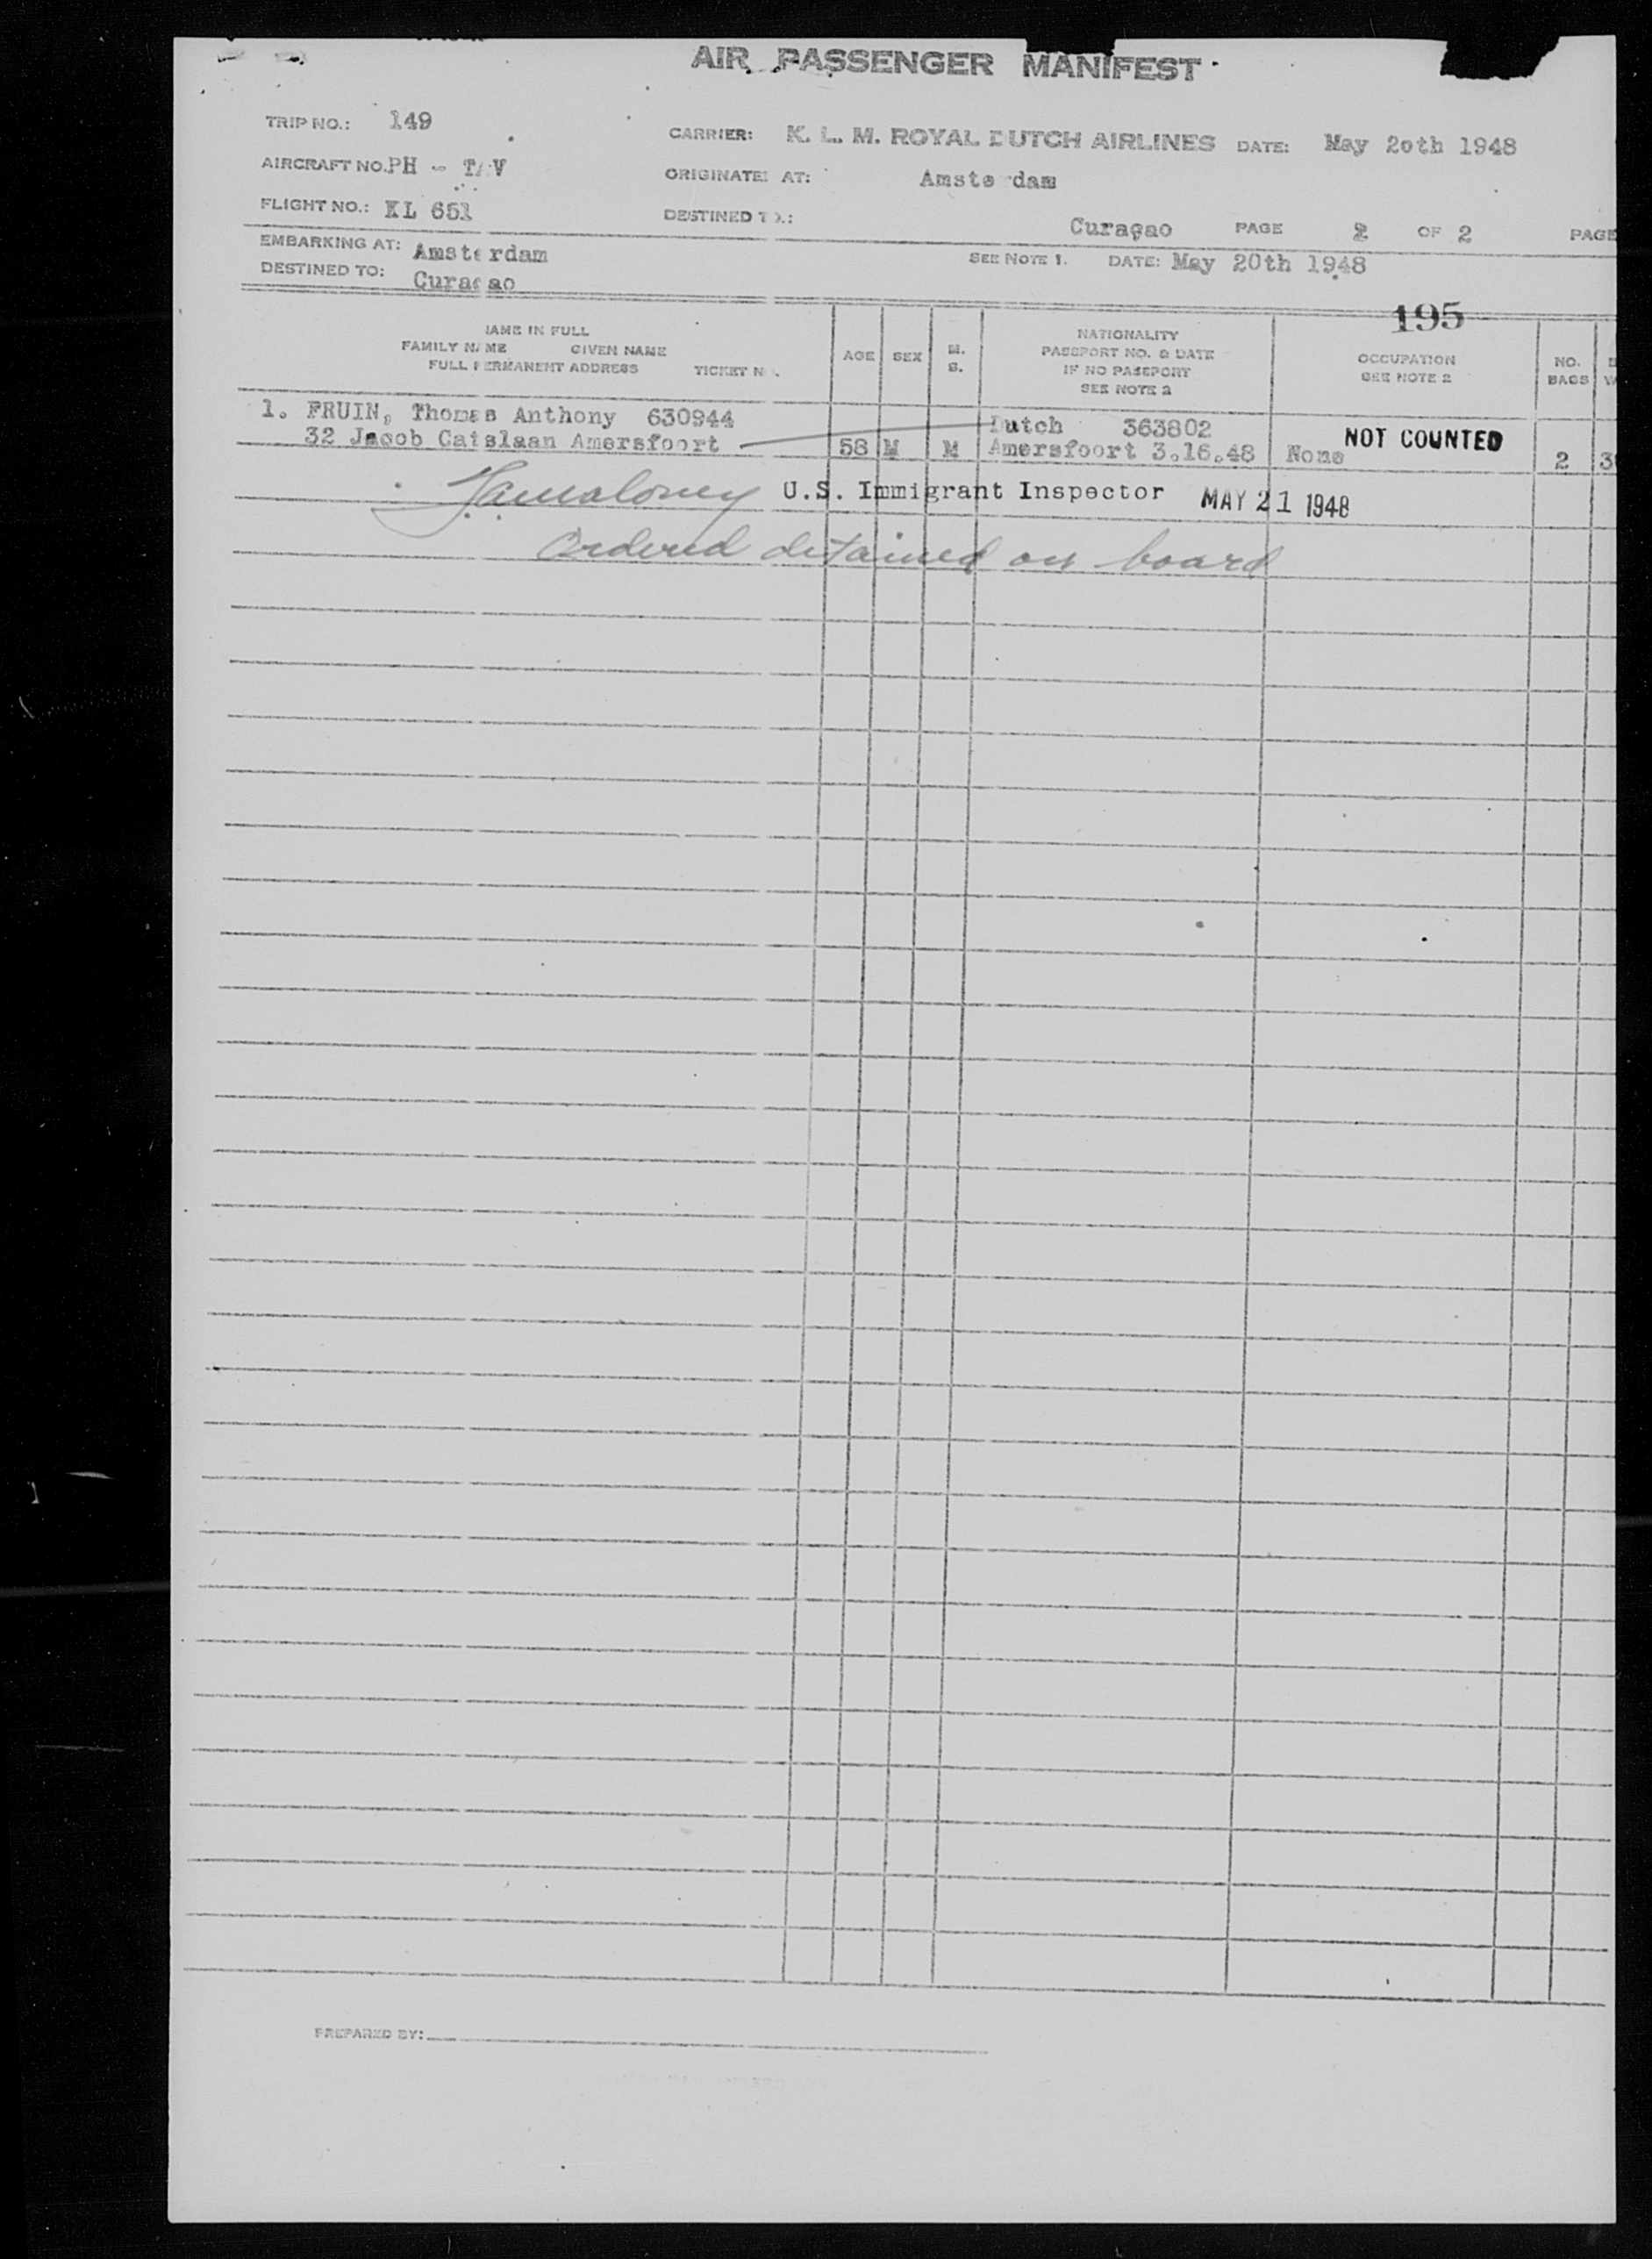 AIR PASSENGER MANIFEST
TRIP NO.: 149
CARRIER: K. L. M. ROYAL DUTCH AIRLINES DATE: May 20th 1948
AIRCRAFT NO. PH - T V
ORIGINATE AT: Amsterdam
FLIGHT NO.: KL 651
DESTINED TO: Curaçao PAGE 2 OF 2 PAGE
EMBARKING AT: Amsterdam
SEE NOTE 1. DATE: May 20th 1948
DESTINED TO: Curaçao
195
NAME IN FULL
FAMILY NAME GIVEN NAME
FULL PERMANENT ADDRESS TICKET NO.
AGE
SEX
M.
S.
NATIONALITY
PASSPORT NO. & DATE
IF NO PASSPORT
SEE NOTE 2
OCCUPATION
SEE NOTE 2
NO.
BAGS
1. FRUIN, Thomas Anthony 630944 Dutch 363802
32 Jacob Catslaan Amersfoort 58 M M Amersfoort 3.16.48 None NOT COUNTED 2 3
U.S. Immigrant Inspector MAY 21 1948
Ordered detained on board
PREPARED BY: